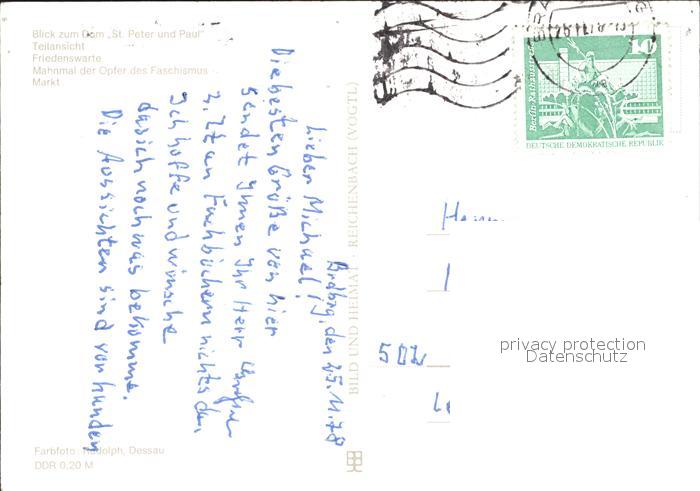 Blick zum Dom „St. Peter und Paul"
Teilansicht
Friedenswarte
Mahnmal der Opfer des Faschismus
Markt
Brdbg, den 25.11.78
Lieber Michael!
Die besten Grüße von hier
sendet Ihnen Ihr Herr
z. Zt an Fachbüchern nichts da.
Ich hoffe und wünsche
das ich noch was bekomme.
Die Aussichten sind vorhanden
Farbfoto: Rudolph, Dessau
DDR 0,20 M
BILD UND HEIMAT · REICHENBACH (VOGTL)
10
Berlin-Rathausstraße
DEUTSCHE DEMOKRATISCHE REPUBLIK
Herrn
502
privacy protection
Datenschutz